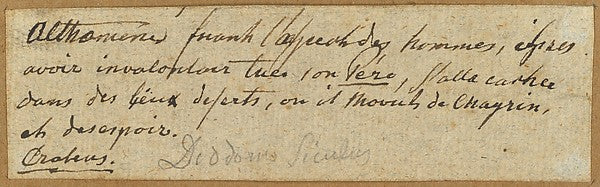 Althamenes fuiant l'aspect des hommes, apres
avoir involontair tué son Pere, s'alla cacher
dans des lieux deserts, ou il mourut de Chagrin,
et desespoir.
Crateus. Diodorus Siculus